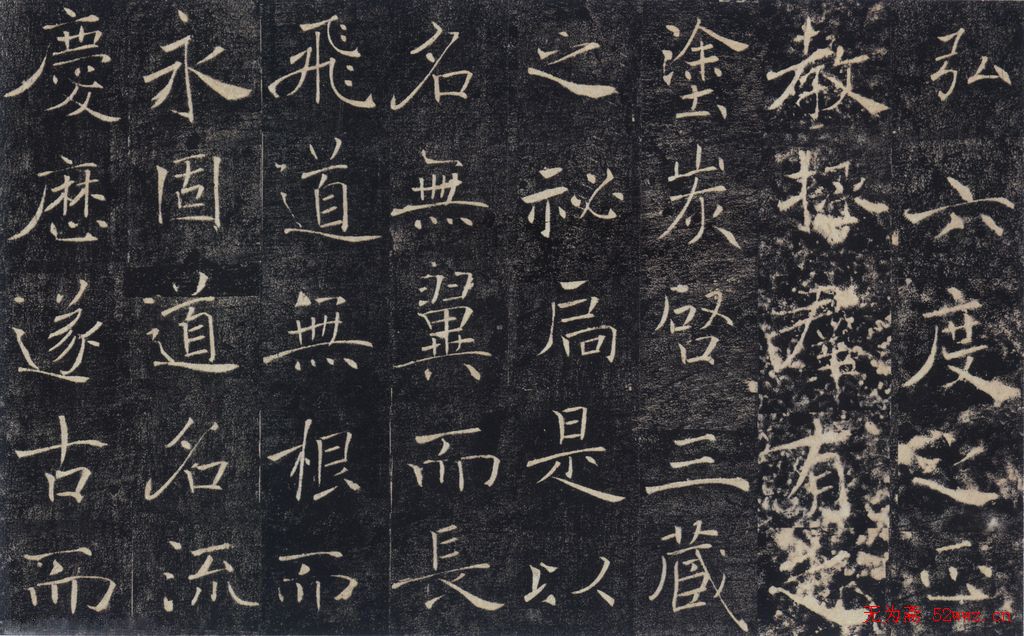 弘六度之正
教拯羣有之
塗炭啓三藏
之祕扃是以
名無翼而長
飛道無根而
永固道名流
慶歷遂古而
无为斋 52wwz.cn